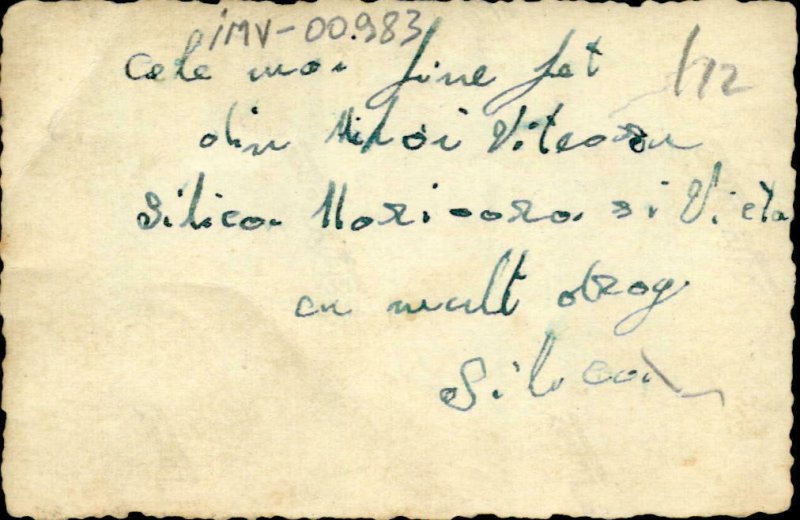 IMV-00.983
Cele mai fine fet
/12
din Mihai Viteazu
Silica Marioara si Victo
cu mult drag
Silica